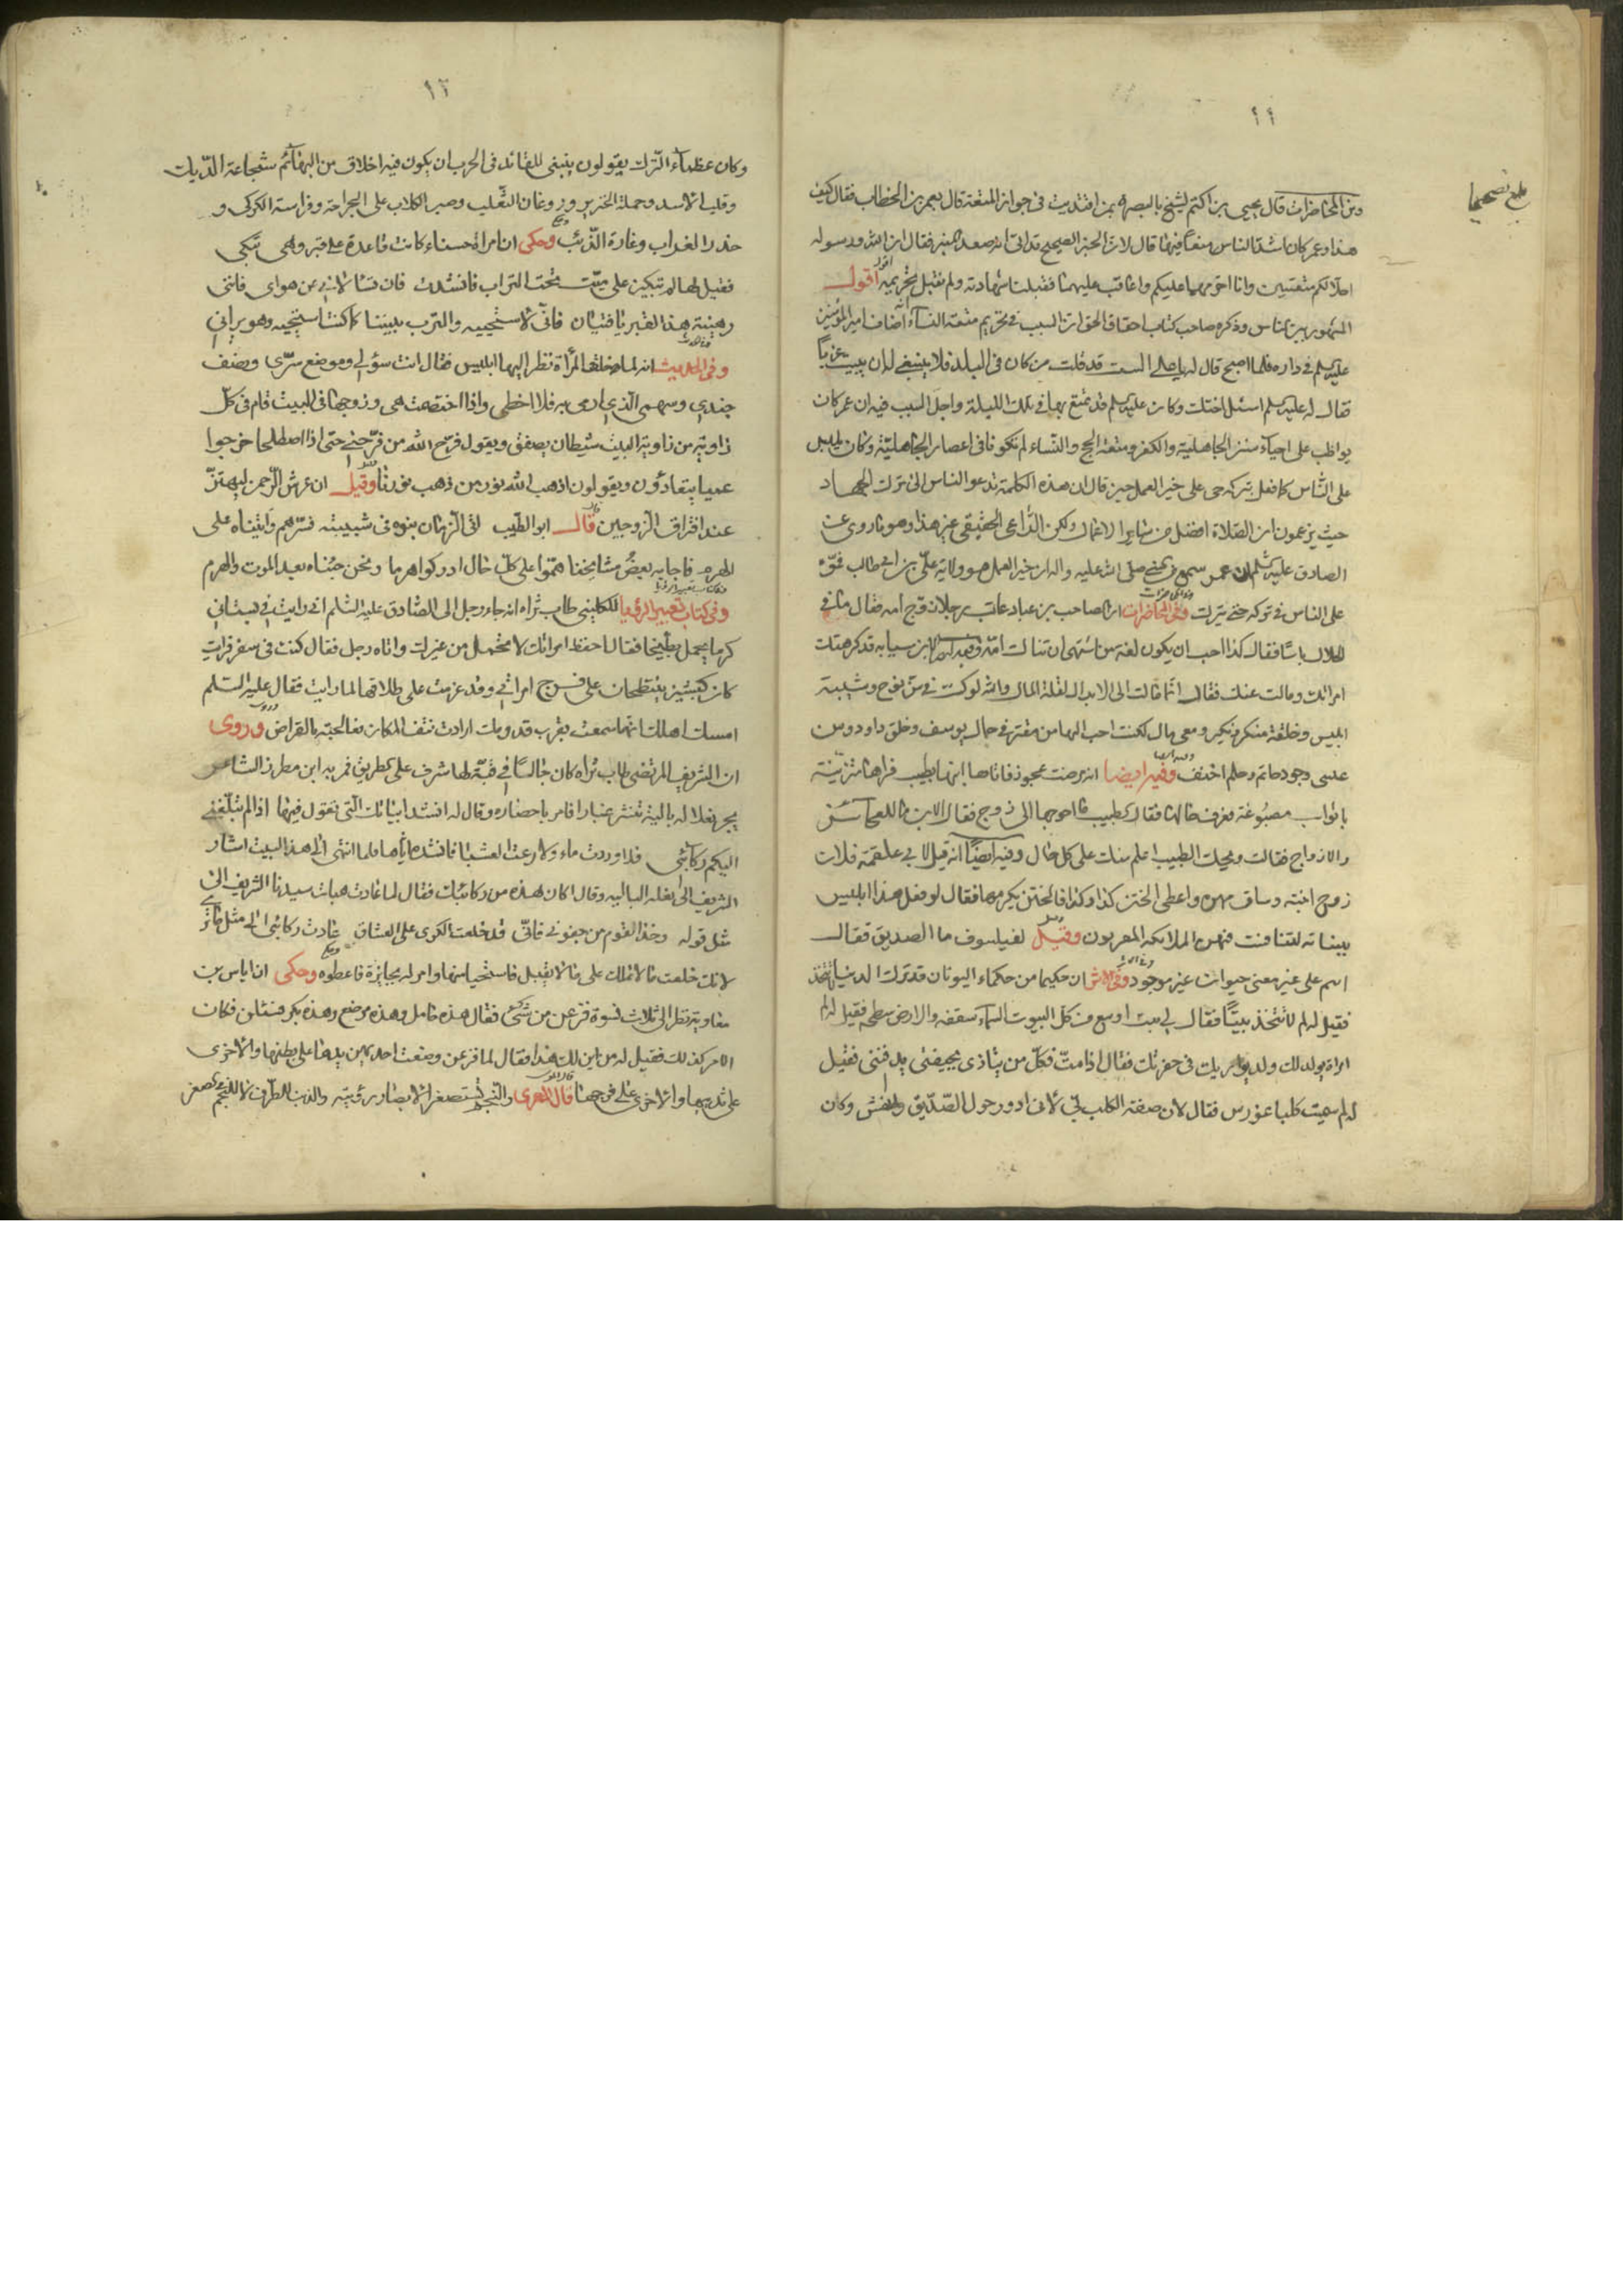 ١١
بلغ تصحيحا
ومن المحاضرات قال يحيى بن اكثم لشيخ بالبصرة بمن اقتديت فى جواز المتعة قال بعمر بن الخطاب فقال كيف
هذا وعمر كان اشد الناس منعا فيها قال لان الخبر الصحيح قد اتى انه صعد المنبر فقال ان الله ورسوله
احلا لكم متعتين وانا احرمهما عليكم واعاقب عليهما فقبلنا شهادته ولم نقبل تحريمه اقول
المشهور بين الناس وذكره صاحب كتاب احقاق الحق ان السبب فى تحريم متعة النسآء انه اضاف امير المؤمنين
عليه السلم فى داره فلما اصبح قال له يا على الست قد قلت من كان فى البلد فلا ينبغى له ان يبيت عزباً
فقال له عليه السلم اسئل اختك وكان عليه السلم قد تمتع بها فى تلك الليلة واجل السبب فيه ان عمر كان
يواظب على احيآء سنن الجاهلية والكفر ومتعة الحج والنساء لم تكونا فى اعصار الجاهلية وكان يلبس
على الناس كما فعل بتركه حى على خير العمل حين قال ان هذه الكلمة تدعو الناس الى ترك الجهاد
حيث يزعمون ان الصلاة افضل من ساير الاعمال ولكن الداعى الحقيقى غير هذا وهو ما روى عن
الصادق عليه السلم ان عمر سمع من النبى صلى الله عليه واله ان خير العمل هو ولاية على بن ابى طالب فموّه
على الناس فى تركه حتى يترك وفى المحاضرات ان صاحب بن عباد عاتب رجلا زوج امه فقال ما فى
الحلال باسا فقال كذا احب ان يكون لغة من اشتهى ان تناك امه وفيه ايضا لابن سيابة قد كرهتك
امراتك ومالت عنك فقال انما مالت الى الابدال لقلة المال والله لو كنت فى سن نوح وشيبة
ابليس وخلقة منكر ونكير ومعى مال لكنت احب اليها من مقتر فى جمال يوسف وخلق داود وسن
عيسى وجود حاتم وحلم احنف وفيه ايضا انه مرضت عجوز فاتاها ابنها بطبيب فراها متزينة
باثواب مصبوغة فعرف حالها فقال الطبيب ما احوجها الى زوج فقال الابن ما للعجائز
والازواج فقالت ويحك الطبيب اعلم منك على كل حال وفيه ايضاً انه قيل لابى علقمة فلان
زوج ابنته وساق مهره واعطى الختن كذا وكذا فالختن يكرمها فقال لو فعل هذا ابليس
ببناته لتنافست فيهن الملائكة المقربون وقيل لفيلسوف ما الصديق فقال
اسم على غير معنى حيوان غير موجود وفى الاثر ان حكيما من حكماء اليونان قد ترك الدنيا
فقيل له لم لا تتخذ بيتاً فقال لى بيت اوسع من كل البيوت السمآء سقفه والارض سطحه فقيل له لم
امراة يولد لك ولد يواريك فى حفرتك فقال اذا مت فكل من يتاذى بجيفتى يدفننى فقيل
له لم سميت كلبا عنورس فقال لان صفة الكلب لى لانى ادور حول الصديق وكان
١٢
وكان عظمآء الترك يقولون ينبغى للقائد فى الحرب ان يكون فيه اخلاق من البهآئم شجاعة الديك
وقلب الاسد وحملة الخنزير وروغان الثعلب وصبر الكلاب على الجراحة وفراسة الكركى و
حذر الغراب وغارة الذئب وحكى ان امراة حسناء كانت قاعدة على قبر وهى تبكى
فقيل لها لم تبكين على ميت تحت التراب فانشدت فان تسألانى عن هواى فاننى
رهينة هذا القبر يا فتيان فانى لاستحييه والترب بيننا كما كنت استحييه وهو يرانى
وفى الحديث انه لما خلقت المرأة نظر اليها ابليس فقال انت سؤلى وموضع سرى ونصف
جندى وسهمى الذى ارمى به فلا اخطى واذا اختصمت هى وزوجها فى البيت قام فى كل
زاوية من زاوية البيت شيطان يصفق ويقول فرّح الله من فرّحنى حتى اذا اصطلحا خرجوا
عميا يتعادون ويقولون اذهب الله نور من ذهب بنورنا وقيل ان عرش الرحمن ليهتز
عند افتراق الزوجين قال ابو الطيب اتى الزمان بنوه فى شبيبته فسرهم واتيناه على
الهرم فاجابه بعض مشايخنا همُ على كل حال ادركوا هرما ونحن جئناه بعد الموت والهرم
وفى كتاب تعبير الرؤيا للكلينى طاب ثراه انه جاء رجل الى الصادق عليه السلم انى رايت فى بستانى
كرما يحمل بطيخا فقال احفظ امراتك لا تحمل من غيرك واتاه رجل فقال كنت فى سفر فرايت
كان كبشين ينتطحان على فرج امراتى وقد عزمت على طلاقها لما رايت فقال عليه السلم
امسك اهلك انها سمعت بقرب قدومك ارادت نتف المكان فعالجته بالمقراض وروى
ان الشريف المرتضى طاب ثراه كان جالسا فى قبة لها شرف على الطريق فمر به ابن مطرز الشاعر
يجر نعلا له بالية تنثر غبارا فامر باحضاره وقال له انشد ابياتك التى تقول فيها اذا لم تبلغنى
اليكم ركائبى فلا وردت ماء ولا رعت العشبا فانشده اياها فلما انتهى الى هذا البيت اشار
الشريف الى نعله البالية وقال اكان هذه من ركائبك فقال لما عادت هبات سيدنا الشريف الى
مثل قوله وخذا النوم من جفونى فانى قد خلعت الكرى على العشاق عادت ركائبى الى مثل ما ترى
لانك خلعت ما لا تملك على من لا يقبل فاستحيا منها وامر له بجايزة فاعطوه وحكى ان اياس بن
معاوية نظر الى ثلاث نسوة فزعن من شئ فقال هذه حامل وهذه مرضع وهذه بكر فسئلن فكان
الامر كذلك فقيل له من اين لك هذا فقال لما فزعن وضعت احديهن يدها على بطنها والاخرى
على ثديها والاخرى على فرجها قال المعرى والنجم تستصغر الابصار رؤيته والذنب للطرف لا للنجم فى الصغر